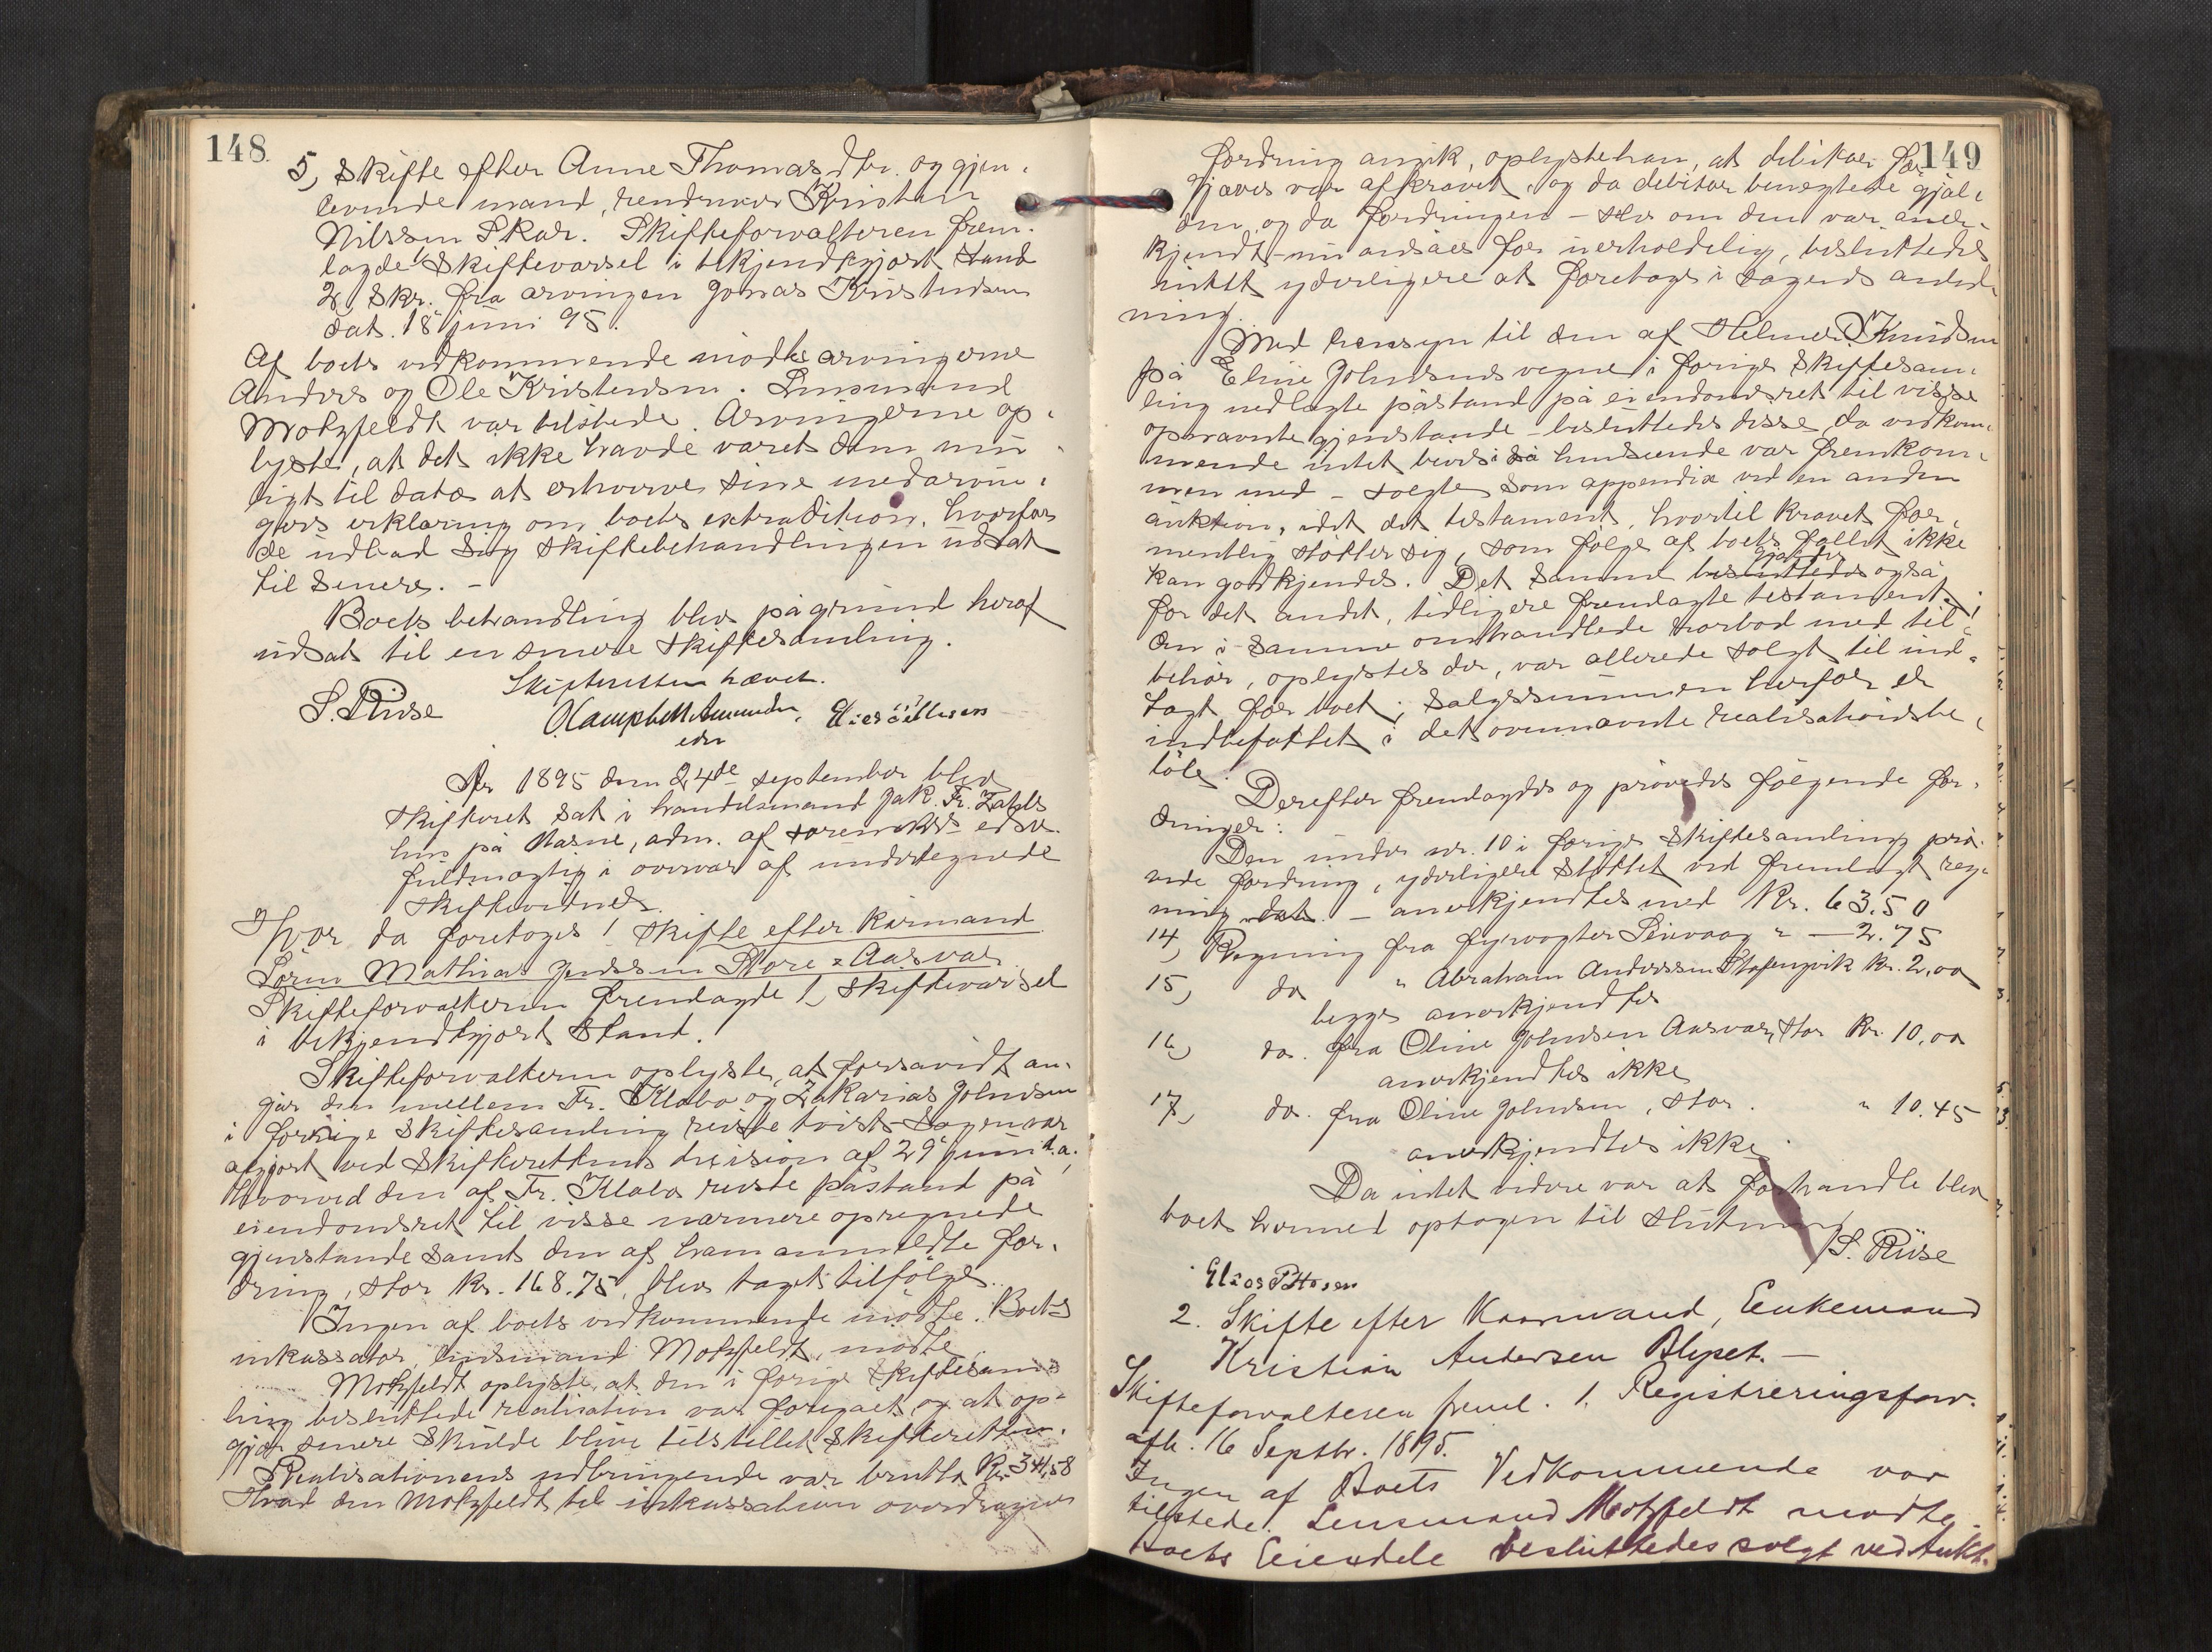 148.
5, Skifte efter Anne Thomasdtr. og gjen-
levende mand, Kristen
Nilssen Skar. Skifteforvalteren frem-
lagde 1, Skiftevarsel i bekjendtgjort stand
2, Skr. fra arvingen Jonas Kristensen
dat. 18 juni 95.
Af boets vedkommende mødte arvingerne
Anders og Ole Kristensen. Lensmand
Motzfeldt var tilstede. Arvingerne op-
lyste, at det ikke havde været dem mu-
ligt til dato at erhverve sine medarvin-
gers erklæring om boets extradition, hvorfor
de udbad sig skiftebehandlingen udsat
til senere. –
Boets behandling blev på grund heraf
udsat til en senere skiftesamling.
Skifteretten hævet.
S. Riise
edsv
År 1895 den 24de september blev
skifteret sat i handelsmand Jak. Fr. Zahls
hus på Nasne, adm. af sorenskr's edsv.
fuldmægtig i overvær af undertegnede
skiftevidner.
Hvor da foretoges 1 Skifte efter kårmand
Sören Mathias Jenssen Store-Aasvær
Skifteforvalteren fremlagde 1, skiftevarsel
i bekjendtgjort stand.
Skifteforvalteren oplyste, at forsåvidt an-
går den mellem Fr. Klæbo og Zakarias Johnsen
i forrige skiftesamling reiste tvist-Sagen var
afgjort ved skifterettens decision af 29 juni d.a.
hvorved den af Fr. Klæbo reiste påstand på
eiendomsret til visse nærmere opregnede
gjenstande samt den af ham anmeldte for-
dring, stor Kr. 168.75, blev taget tilfølge.
Ingen af boets vedkommende mødte. Boets
inkassator, lensmand Motzfeldt, mødte.
Motzfeldt oplyste, at den i forrige skiftesam-
ling besluttede realisation var foregået, og at op-
gjør senere skulde blive tilstillet skifteretten.
Realisationens udbringende var brutto Kr. 341,58
Hvad den Motzfeldt til inkassation overdragne
149
fordring angik, oplyste han, at debitor for-
gjæves var afkrævet, og da debitor benegtede gjæl-
den, og da fordringen – selv om den var aner-
kjendt – nu ansåes for uerholdelig, besluttedes
intet yderligere at foretage i sagens anled-
ning.
Med hensyn til den af Helmer Knudsen
på Eline Johnsens vegne i forrige skiftesam-
ling nedlagte påstand på eiendomsret til visse
opnævnte gjenstande – besluttedes disse, da vedkom-
mende intet bevis i så henseende var fremkom-
men med – solgte som appendix ved en anden
auktion, idet det testament, hvortil kravet for-
mentlig støtter sig, som følge af boets fallit ikke
kan godkjendes. Det samme besluttedes også
gjælder
for det andet, tidligere fremlagte testament;
den i samme omhandlede nordbåd med til-
behør, oplystes der, var allerede solgt til ind-
tægt for boet; salgssummen herfor er
indbefattet i det ovennævnte realisationsbe-
løb.
Derefter fremlagdes og prøvedes følgende for-
dringer:
Den under nr. 10 i forrige skiftesamling prø-
vede fordring, yderligere støttet ved fremlagt reg-
ning dat. – anerkjendtes med Kr. 63.50
14, Regning fra fyrvogter " – 2.75
15, do " Abraham Anderssen Kr. 2,00
begge anerkjendtes
16, do. fra Oline Johnsen Aasvær, stor Kr. 10,00
anerkjendtes ikke
17, do. fra Oline Johnsen, stor " 10.45
anerkjendtes ikke.
Da intet videre var at forhandle blev
boet hermed optagen til slutning
S. Riise
2. Skifte efter Kaarmand, Enkemand
Kristian Andersen
Skifteforvalteren freml. 1. Registreringsforr.
afh. 16 Septbr. 1895.
Ingen af Boets Vedkommende var
tilstede. Lensmand Motzfeldt mødte.
Boets Eiendele besluttedes solgt ved Aukt.